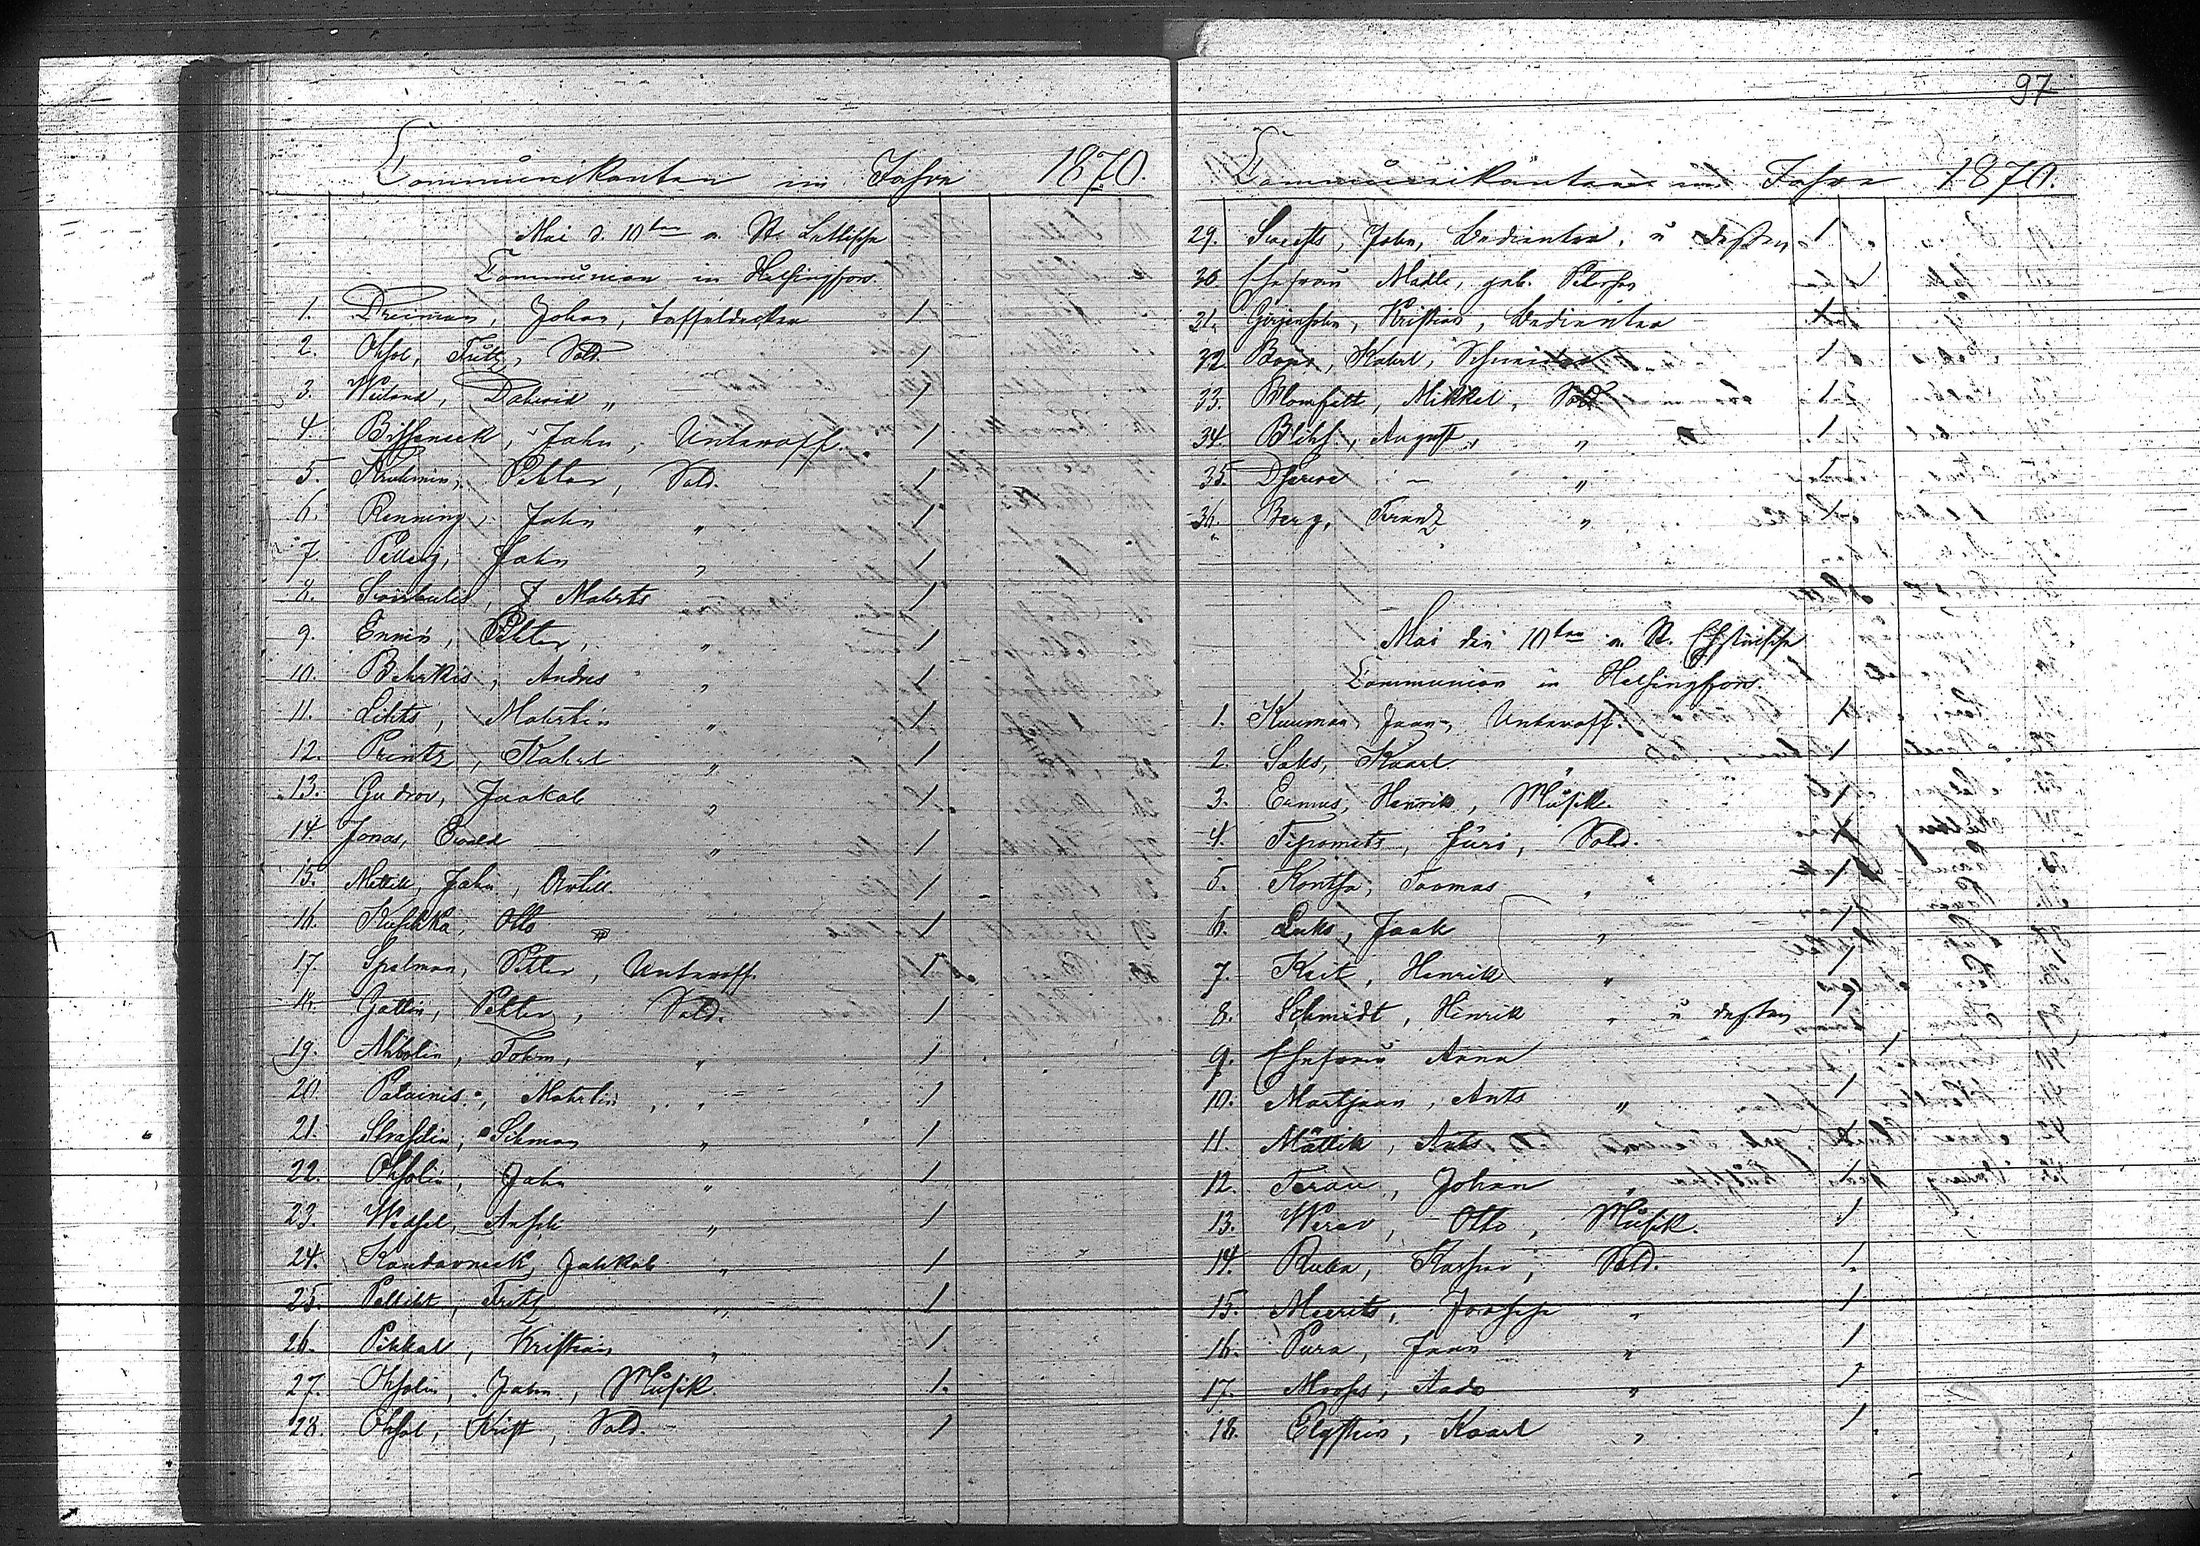 Communikanten im Jahre 1870.
Mai d. 10ten a. St. Lettische
Communion in Helsingfors.
1. Dreiman, Johan, Taffeldecker 1.
2. Ohsol, Fritz, Sold. 1
3. Wieland, Dahwid " 1
4. Bisseneek, Jahn, Unteroff. 1
5. Kruhmin, Pehter, Sold. 1
6. Renning, Jahn " 1
7. Jahn " 1
8. J Mahrts 1
9. Ennin, Pehter, " 1
10. Behrtkis, Andres " 1
11. Lihts, Mahrtin " 1
12. Printz, Kahrl " 1
13. Gudrov, Jaakob " 1
14 Jonas, Ewald — " 1
15. Mettill, Jahn, Artill 1
16. Kuschka, Otto " 1
17. Spalman, Pehter, Unteroff. 1
18. Gattin, Pehter, Sold. 1
19. Ahbolin, Tohm, " 1
20. Palainis, Mahrtin, " 1
21. Strasdin, Sihman " 1
22. Ohsolin, Jahn " 1
23. Wedsel, Ansch " 1
24. Kandavneek, Jahkob " 1
25. Pellikt, Fritz " 1
26. Pihkal, Kristian " 1.
27. Ohsolin, Jahn, Musik. 1.
28. Ohsol, Krist, Sold. 1
97
Communikanten im Jahre 1870.
29. Sweests, Jahn, Bedienter, u dessen 1
30. Ehefrau Madle, geb. Peterson
31. Girgensohn, Kristian, Bedienter 1
32 Kahrl, Schneider 1
33. Blomfeldt, Mikkel, Sold 1
34. Blihs, August, " 1
35. Dserwe — " 1
36. Berg, Franz " 1
Mai den 10ten a. St. Ehstnische
Communion in Helsingfors.
1. Kuuman, Jaan, Unteroff. 1
2. Saks, Kaarl " 1
3. Ermus, Henrik, Musik. 1
4. Jüri, Sold. 1
5. Kontsa, Toomas " 1
6. Luks, Jaak " 1
7. Keik, Henrik " 1
8. Schmidt, Hinrik " u dessen 1
9. Ehefrau Anna 1
10. Martjaan, Ants " 1
11. Mättik, Ants 1
12. Terav, Johan " 1
13. Werev, Otto, Musik. 1
14. Ruba, Kaspar, Sold. 1.
15. Meerits, Joosep " 1
16. Pura, Jaan " 1
17. Mooses, Aado " 1
18. Kaarl " 1.